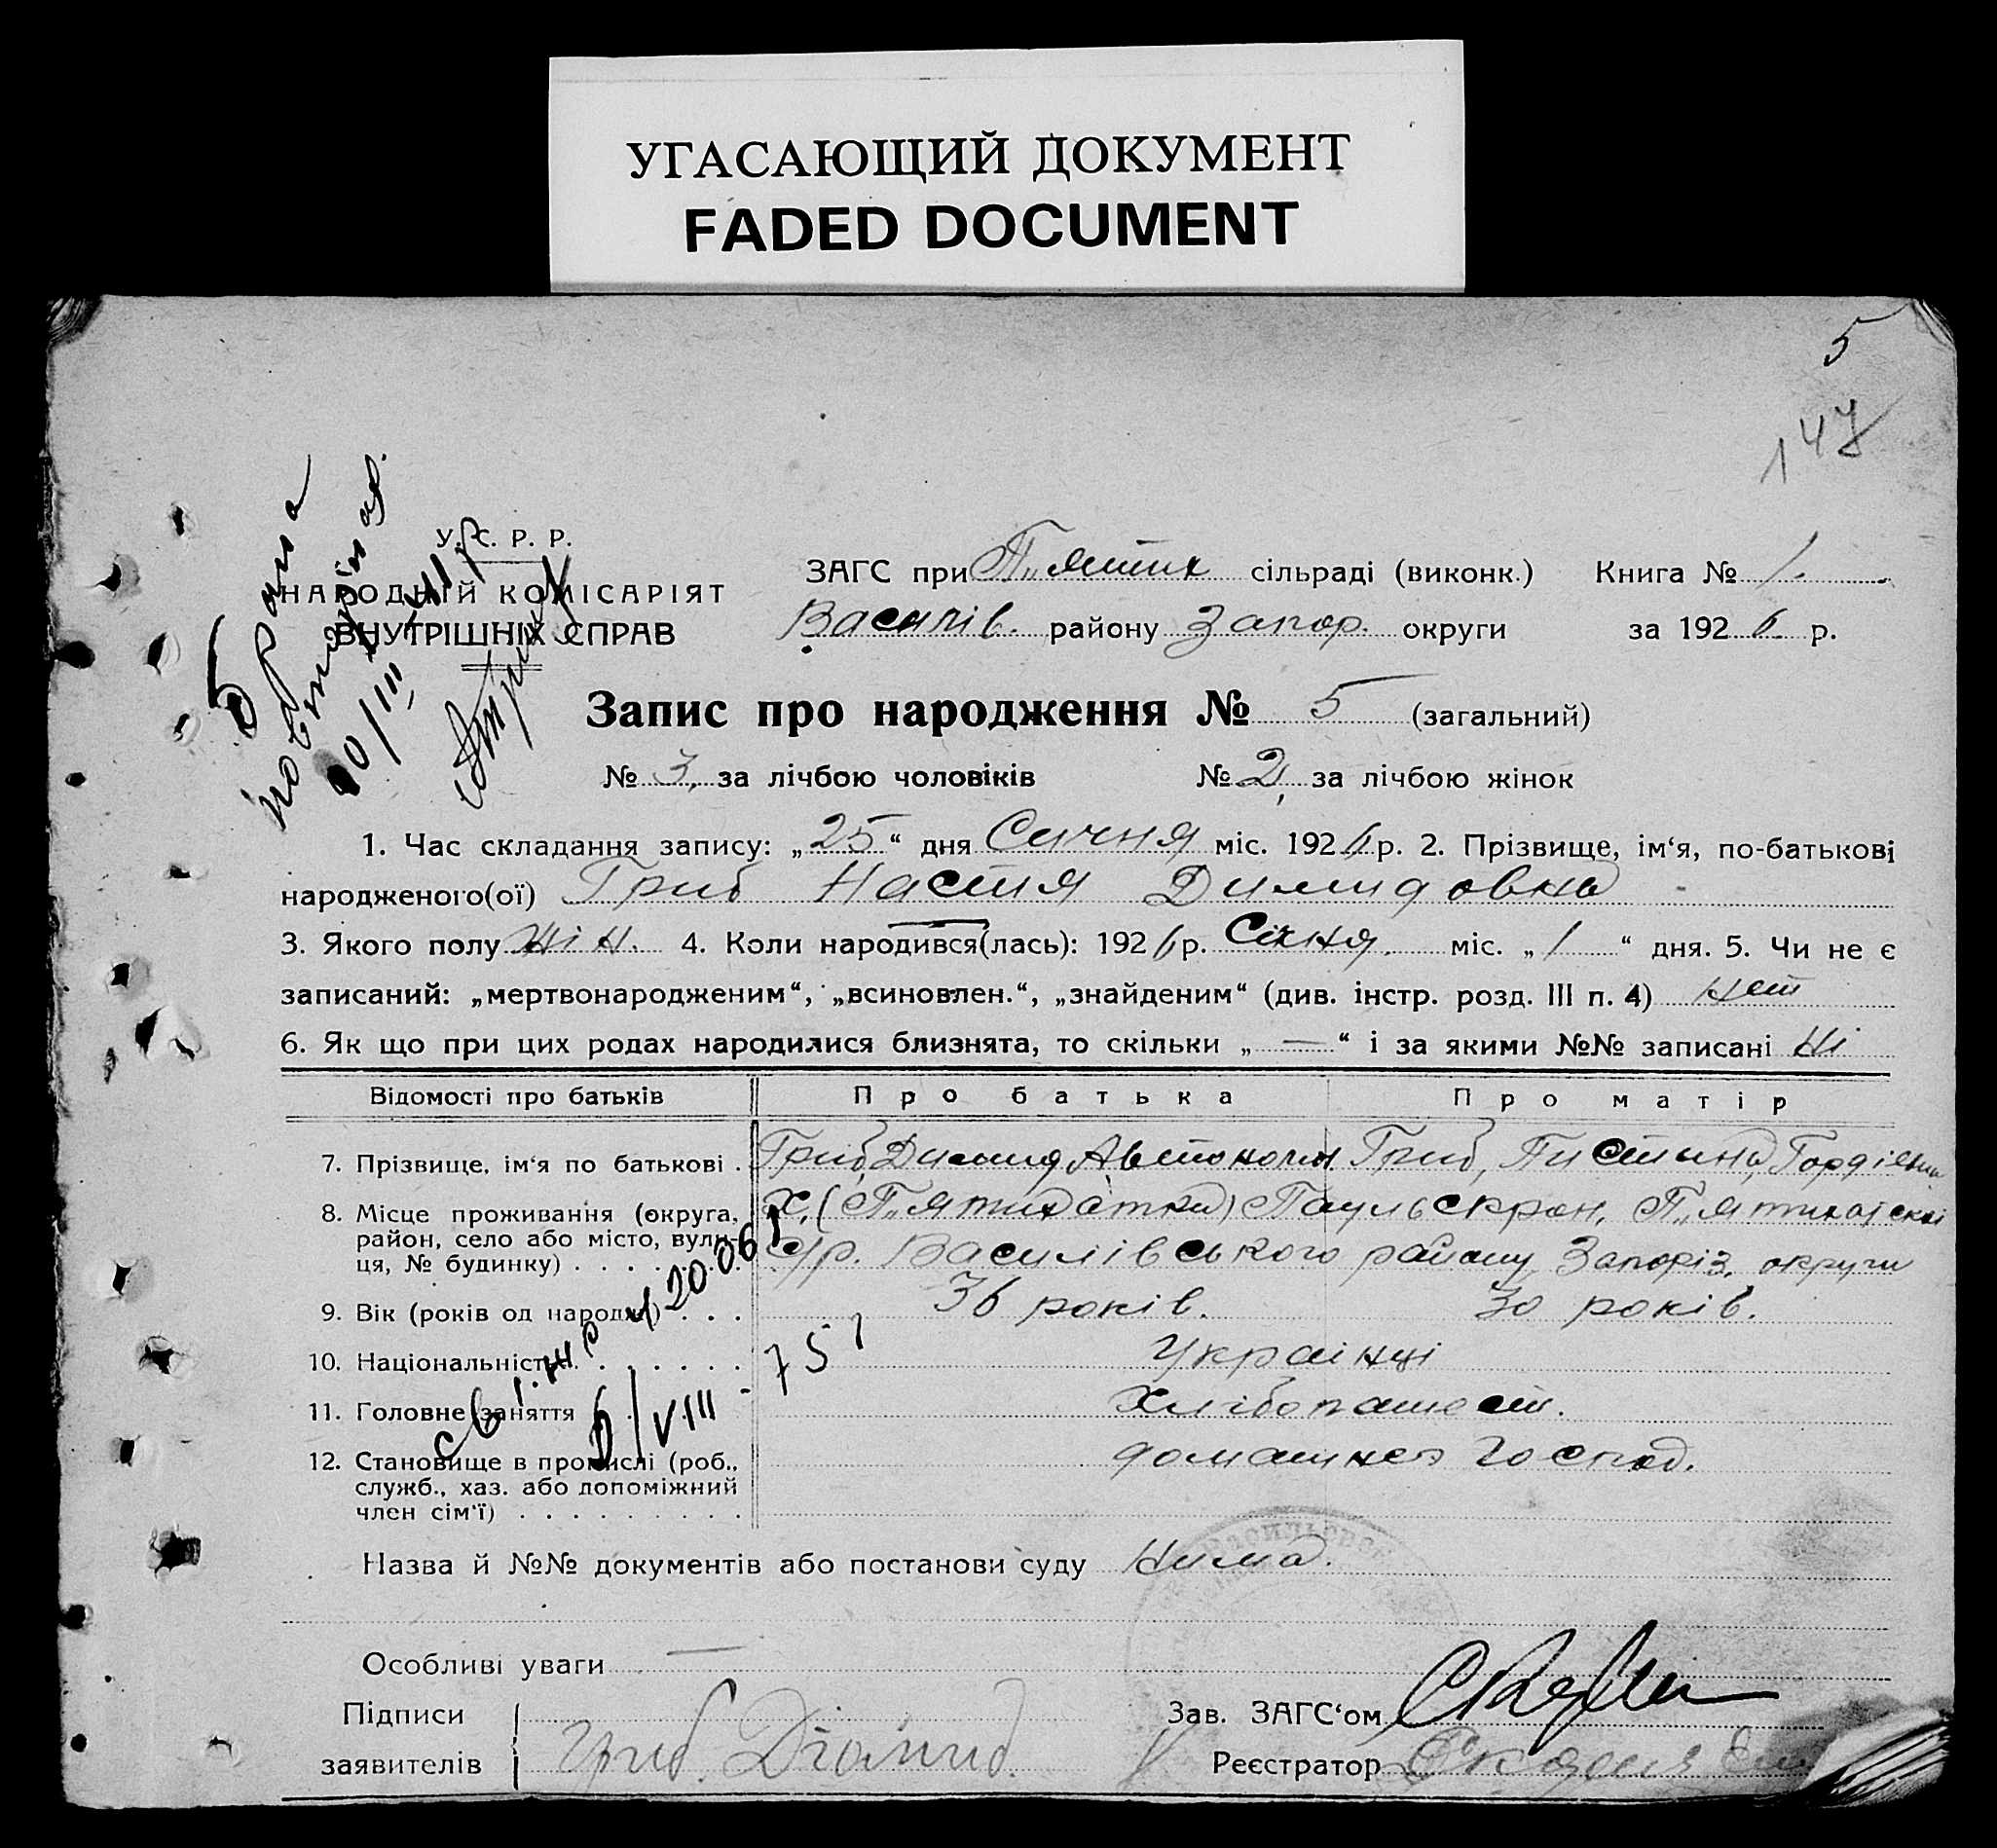 УГАСАЮЩИЙ ДОКУМЕНТ
FADED DOCUMENT
5
147
У. С. Р. Р.
НАРОДНІЙ КОМІСАРІЯТ
ВНУТРІШНІХ СПРАВ
5
видана
10/III
ЗАГС при П"ятих сільраді (виконк.) Книга № 1.
Василів. району Запор. округи за 1926 р.
Запис про народження № 5 (загальний)
№ 3, за лічбою чоловіків № 2, за лічбою жінок
1. Час складання запису: „25“ дня Січня міс. 1926 р. 2. Прізвище, ім‘я, по-батькові
народженого(ої) Гриб Настя Димидовна
3. Якого полу жін. 4. Коли народився(лась): 1926 р. Січня. міс. „1“ дня. 5. Чи не є
записаний: „мертвонародженим“, „всиновлен.“, „знайденим“ (див. інстр. розд. III п. 4) нет
6. Як що при цих родах народилися близнята, то скільки „—“ і за якими №№ записані ні
Відомості про батьків Про батька Про матір
7. Прізвище, ім‘я по батькові . Гриб, Димид Автоном. Гриб, Пистина, Гордієвна
8. Місце проживання (округа, х. (П"ятихатки) Паульскрон, П"ятихатскої
район, село або місто, вули- с/р. Василівського району Запоріз. округи
ця, № будинку) . . . . . . . .
9. Вік (років од народж.) . . . 36 років. 30 років.
10. Національність . . . . . . . Українці
11. Головне заняття . . . . Хлібопашест.
12. Становище в промислі (роб., домашнев господ.
служб., хаз. або допоміжний
член сім‘ї) . . . . . . . . .
200 61
751
6/VIII -
Назва й №№ документів або постанови суду Нима.
Особливі уваги —
Підписи Зав. ЗАГС‘ом
заявителів Гриб. Діомид. Реєстратор